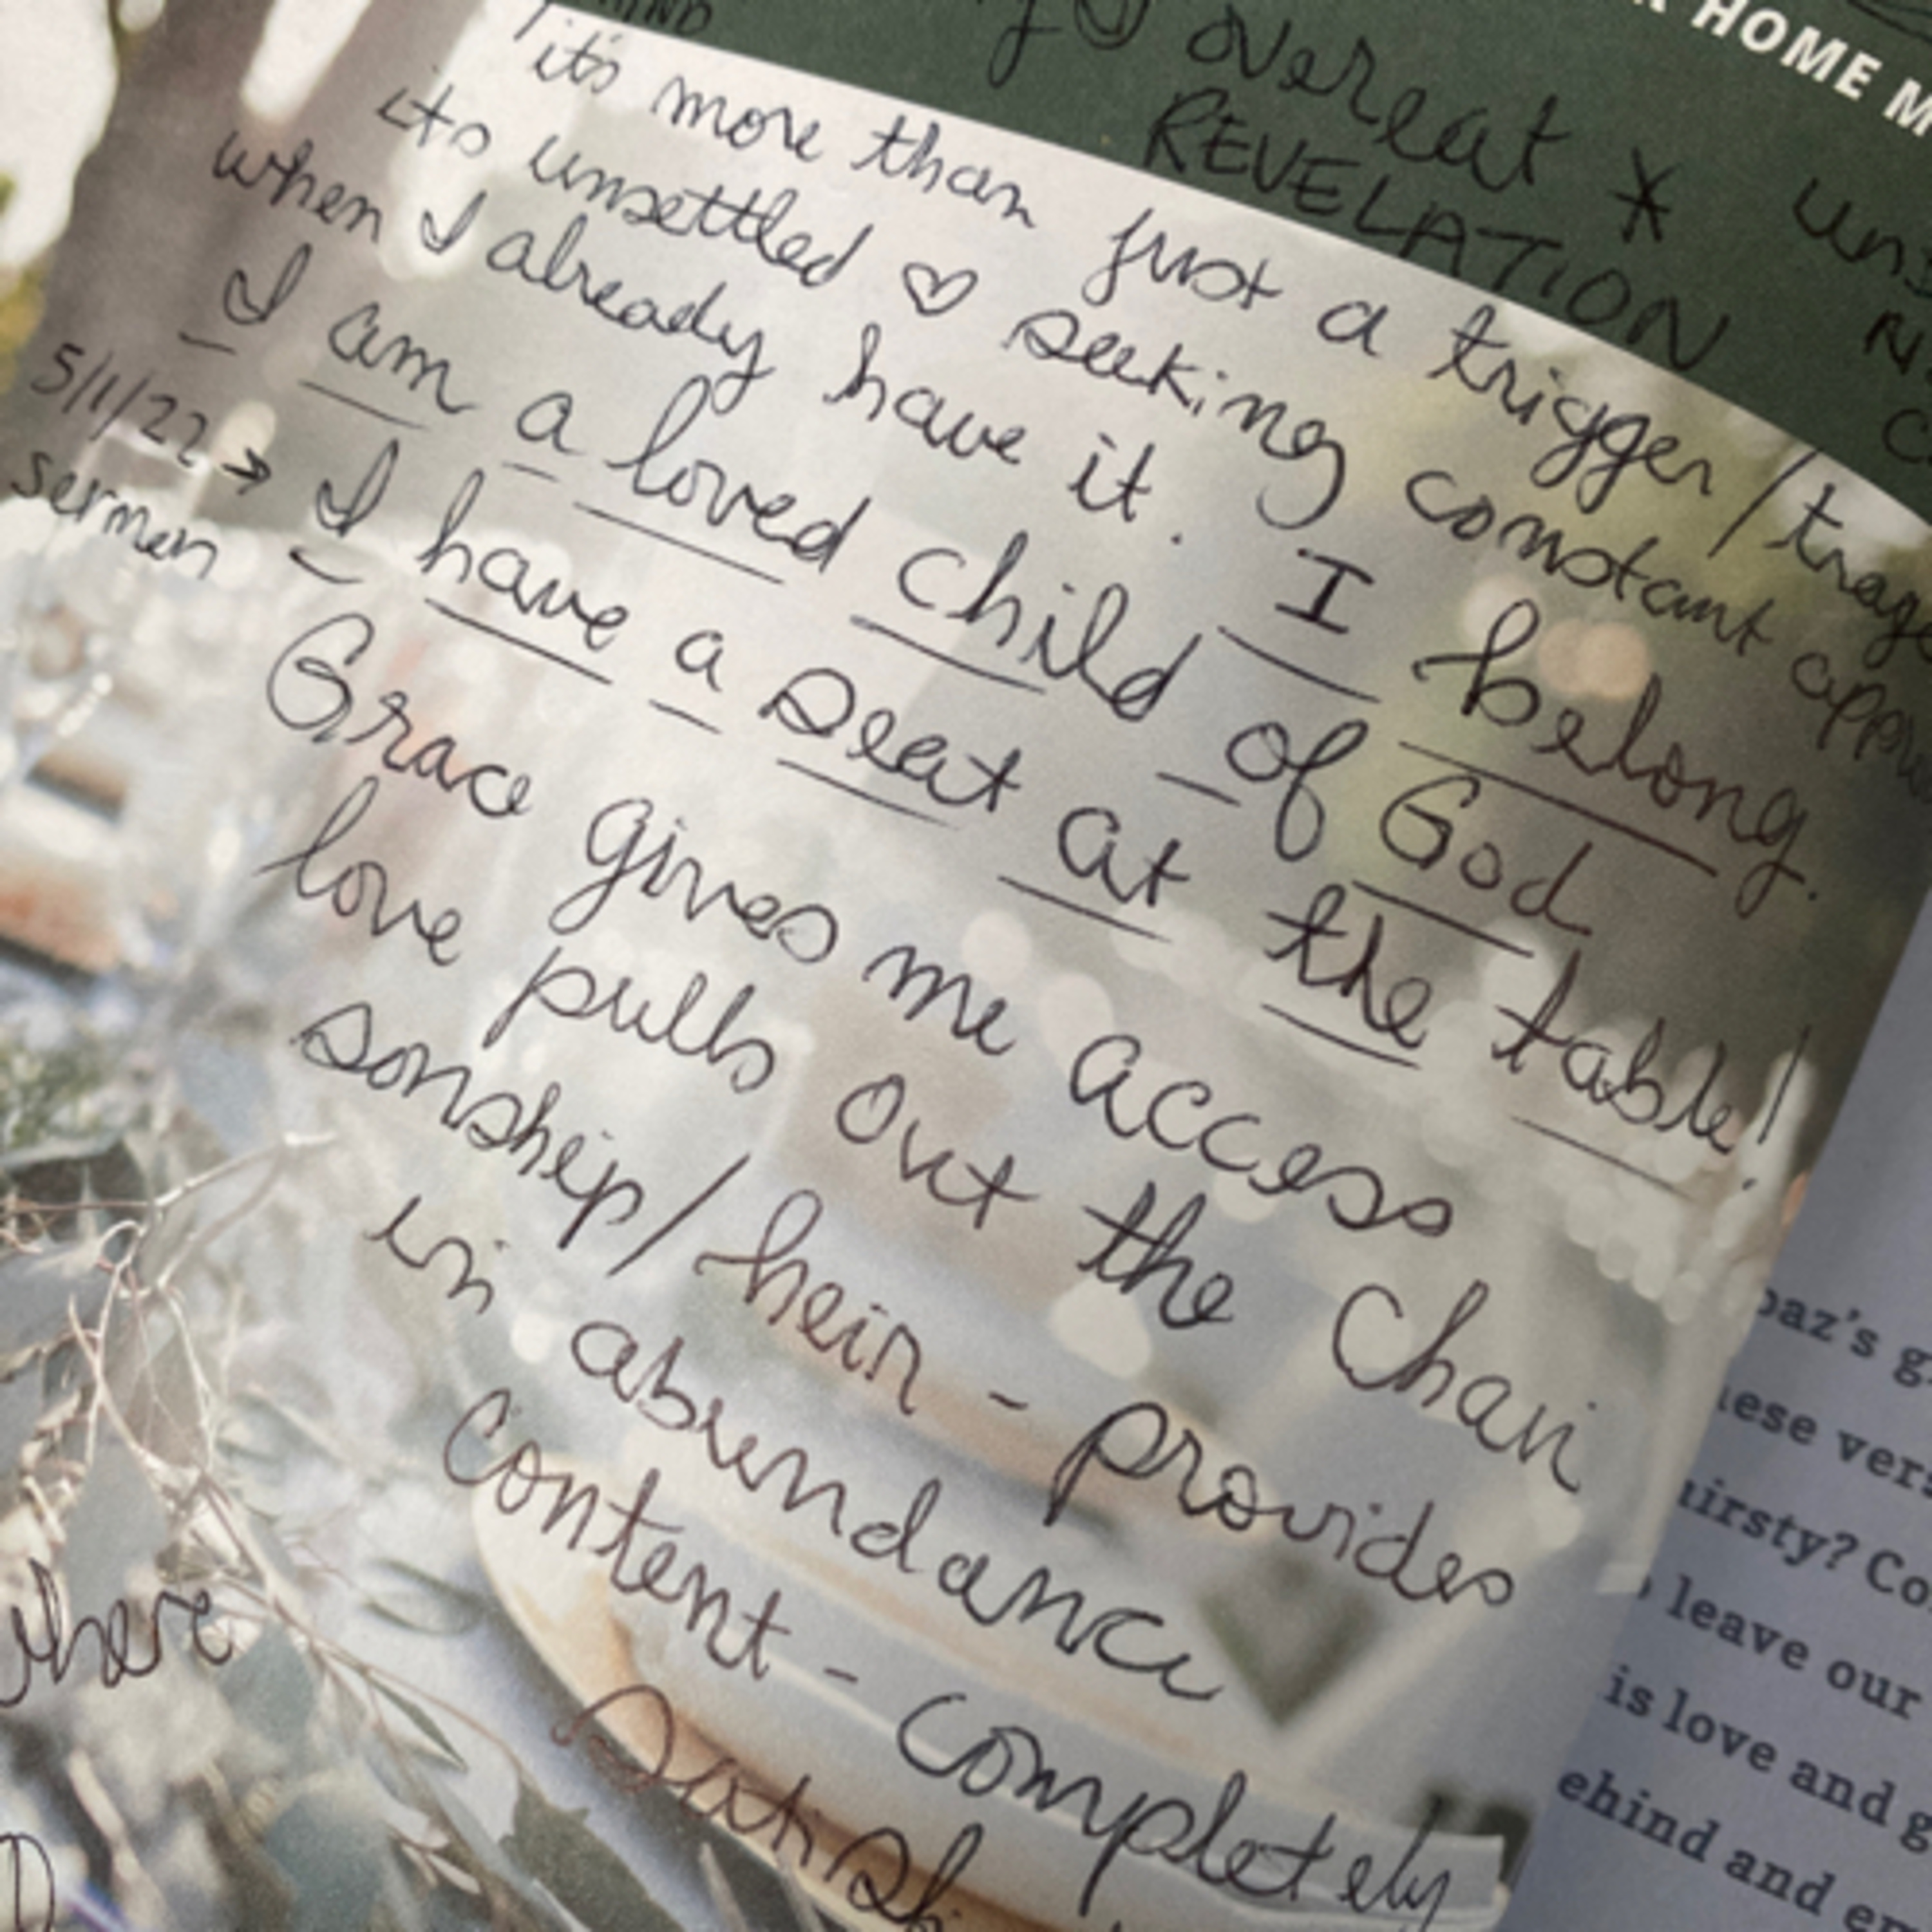 HOME M
overeat *
REVELATION
it's more than just a trigger/
its unsettled ♡ seeking constant
when I already have it. I belong.
I am a loved child of God
5/1/22 → I have a seat at the table!
sermon
Grace gives me access
love pulls out the chair
sonship/heir - provides
in abundance
content - completely
where
baz's g
ese vers
irsty? Co
leave our
is love and g
ehind and en